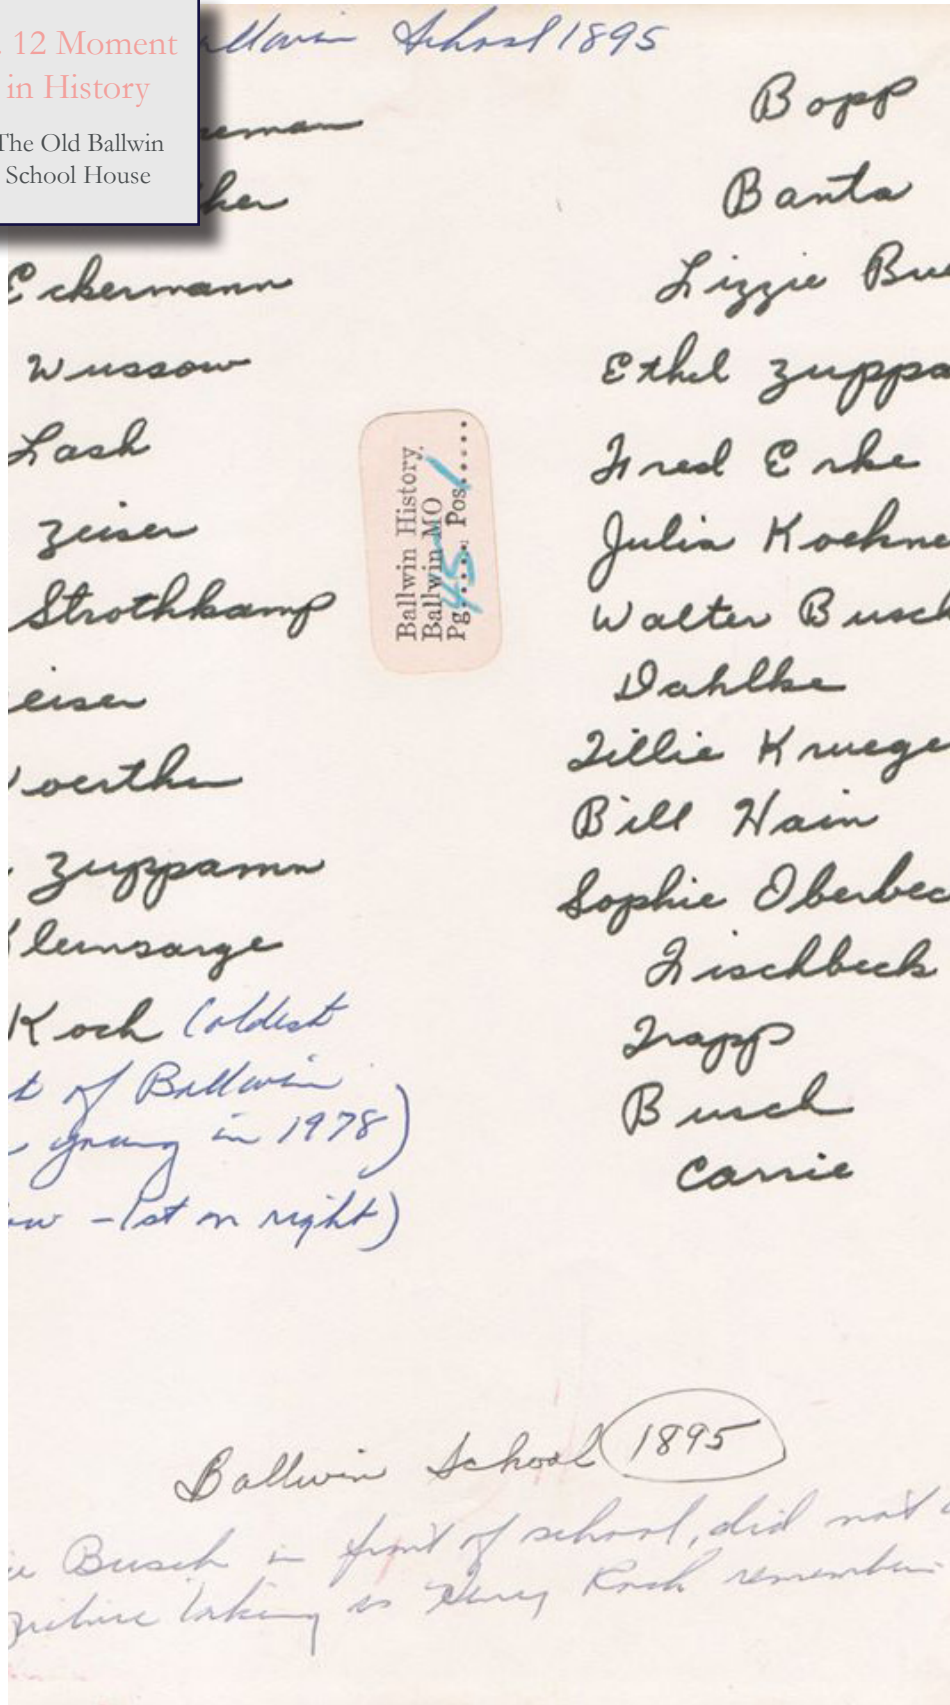 . 12 Moment
in History
The Old Ballwin
School House
allwin School 1895
eman
ther
Eckermann
Wussow
Lash
Zeiser
Strothkamp
eiser
oerther
Zuppamn
leinsarge
Koch (oldest
t of Ballwin
young in 1978)
ow - 1st on right)
Ballwin History,
Ballwin MO
Pg..45.. Pos.1....
Bopp
Banta
Lizzie Bus
Ethel Zuppa
Fred Erke
Julia Koehne
Walter Busch
Dahlke
Tillie Kruege
Bill Hain
Sophie Oberbec
Fischbeck
Trapp
Busch
Carrie
Ballwin School 1895
ie Busch in front of school, did not
picture taking as Henry Koch remember